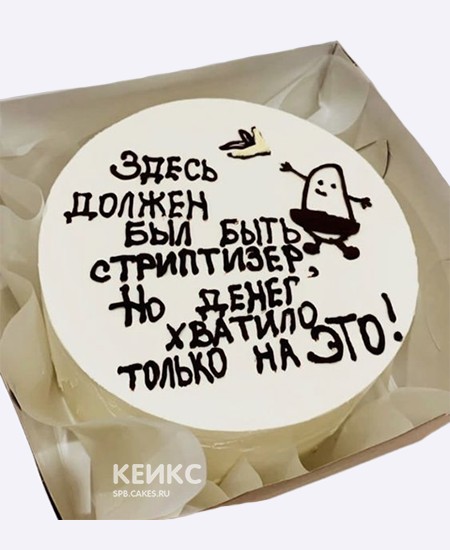 Здесь
должен
был быть
стриптизер,
но денег
хватило
только на это!
КЕИКС
SPB.CAKES.RU